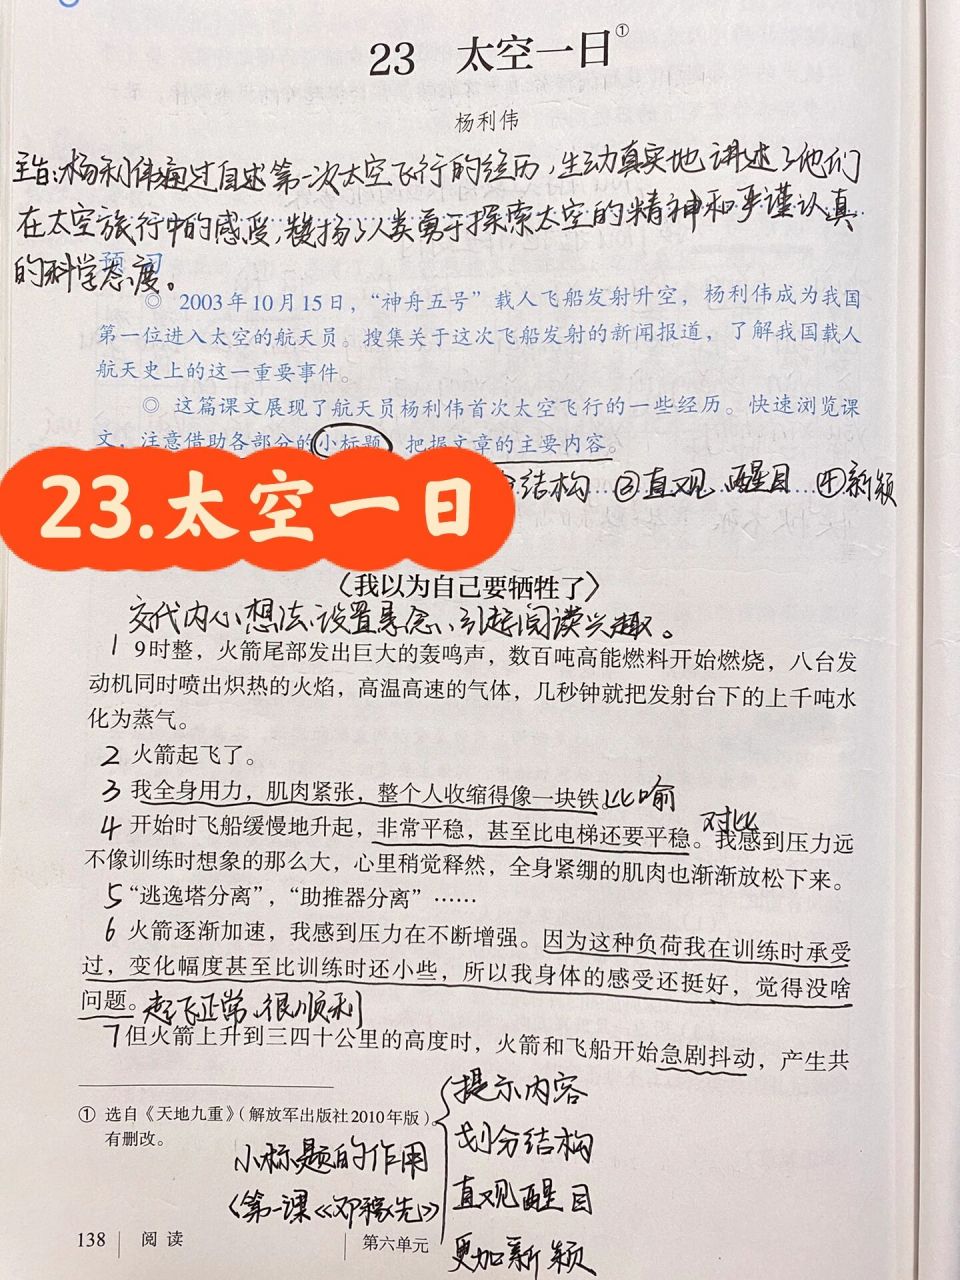 23 太空一日①
杨利伟
主旨:杨利伟通过自述第一次太空飞行的经历,生动真实地讲述了他们
在太空旅行中的感受,赞扬了人类勇于探索太空的精神和严谨认真
的科学态度。
预习
◎ 2003年10月15日,“神舟五号”载人飞船发射升空,杨利伟成为我国
第一位进入太空的航天员。搜集关于这次飞船发射的新闻报道,了解我国载人
航天史上的这一重要事件。
◎ 这篇课文展现了航天员杨利伟首次太空飞行的一些经历。快速浏览课
文,注意借助各部分的小标题,把握文章的主要内容。
结构 ③直观 醒目 ④新颖
23.太空一日
〈我以为自己要牺牲了〉
交代内心想法、设置悬念、引起阅读兴趣。
1 9时整,火箭尾部发出巨大的轰鸣声,数百吨高能燃料开始燃烧,八台发
动机同时喷出炽热的火焰,高温高速的气体,几秒钟就把发射台下的上千吨水
化为蒸气。
2 火箭起飞了。
3 我全身用力,肌肉紧张,整个人收缩得像一块铁。比喻
对比
4 开始时飞船缓慢地升起,非常平稳,甚至比电梯还要平稳。我感到压力远
不像训练时想象的那么大,心里稍觉释然,全身紧绷的肌肉也渐渐放松下来。
5 “逃逸塔分离”,“助推器分离”……
6 火箭逐渐加速,我感到压力在不断增强。因为这种负荷我在训练时承受
过,变化幅度甚至比训练时还小些,所以我身体的感受还挺好,觉得没啥
问题。起飞正常、很顺利
7 但火箭上升到三四十公里的高度时,火箭和飞船开始急剧抖动,产生共
① 选自《天地九重》(解放军出版社2010年版)。
有删改。
小标题的作用
〈第一课《邓稼先》〉
提示内容
划分结构
直观醒目
更加新颖
138 阅读
第六单元